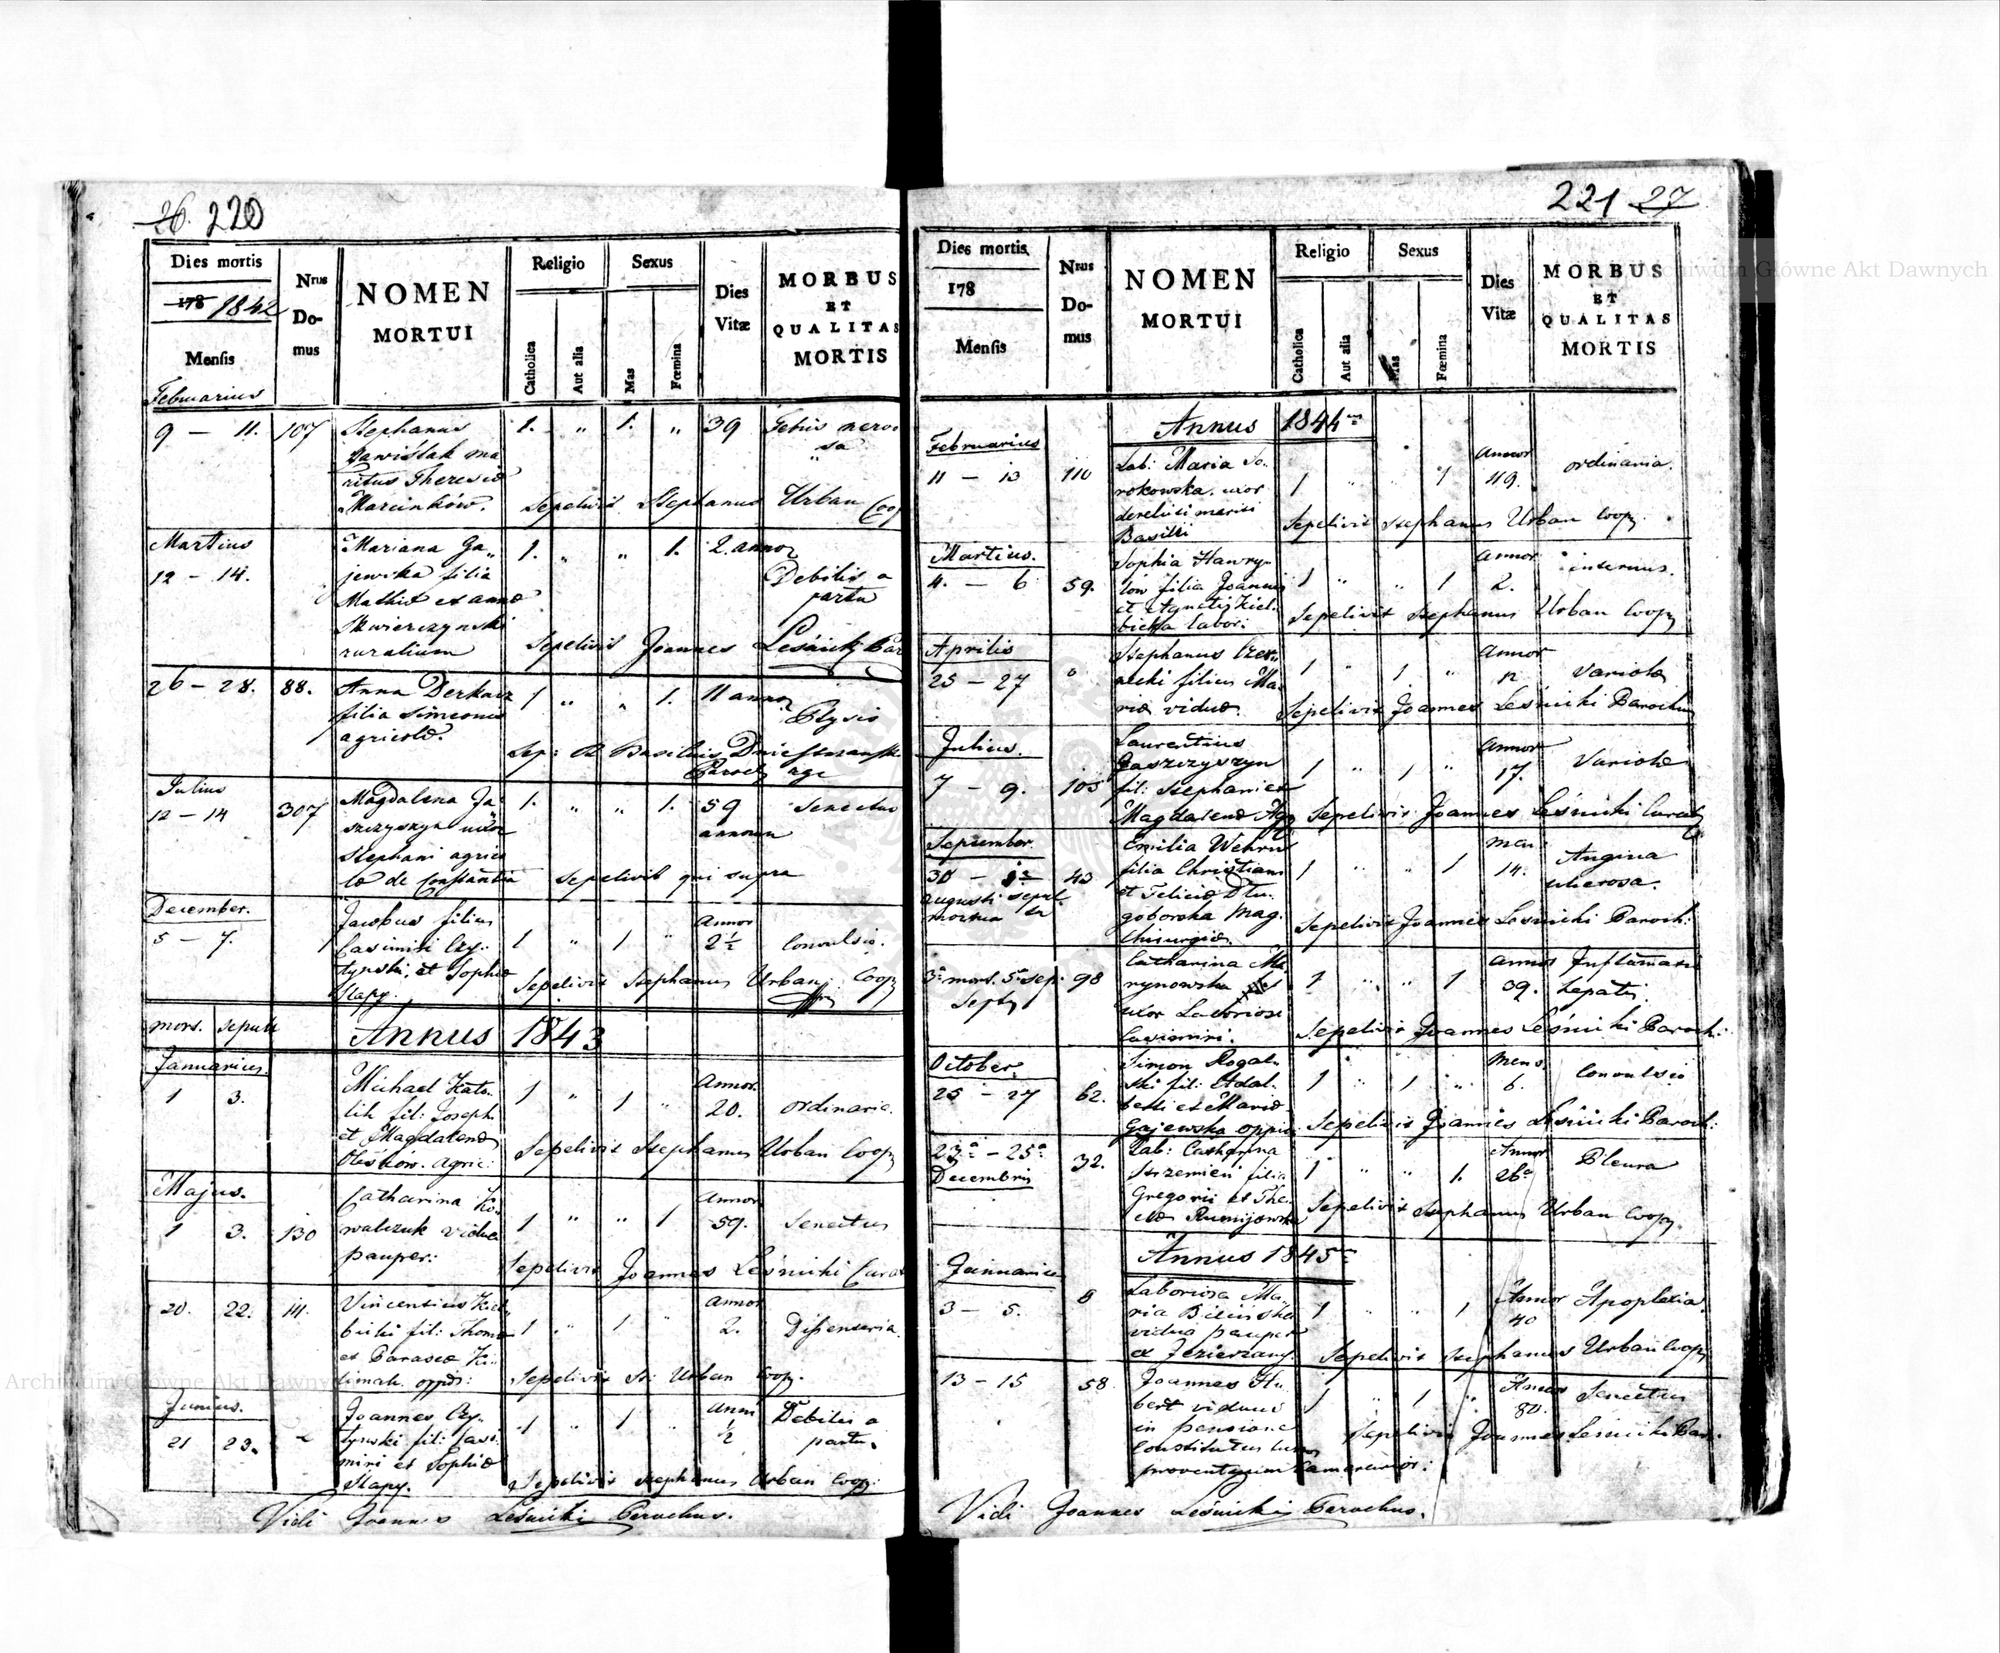 26. 220
Dies mortis
178 1842
Mensis
Nrus Do-mus
NOMEN MORTUI
Religio
Catholica
Aut alia
Sexus
Mas
Fœmina
Dies Vitæ
MORBUS ET QUALITAS MORTIS
Februarius
9 – 11. 107 Stephanus 1. „ 1. „ 39 Febris nervo
sa
ritus Theresiæ
Marcinków. Sepelivit Stephanus Urban Coop
Martius Mariana Ga„ 1. „ „ 1. 2. annor
12 – 14. jewska filia Debilis a
Mathiæ et annæ partu
Skwierczynski
ruralium Sepelivit Joannes Leśnicki Par
26 – 28. 88. Anna Derkacz 1 „ „ 1. 11 annor
filia Simeonis
agricolæ.
Sep: Basilius
Paroch
Julius
12 – 14 307 Magdalena Ja- 1. „ „ 1. 59 Senectus
szczyszyn uxor annorum
Stephani agrico
læ de Constantia Sepelivit qui supra
December. Jacobus filius Annor
5 – 7. 1 Casimiri Czy- 1 „ 1 „ 2½ Convulsio.
et Sophiæ
Slapy. Sepelivit Stephanus Urban Coop
mors. sepult Annus 1843
Januarius.
1 3. Michael Kato- 1 „ 1 „ Annor. 20. ordinaria.
lik fil: Joseph
et Magdalenæ
agric: Sepelivit Stephanus Urban Coop
Majus. Catharina Ko- Annor
1 3. 130 walczuk vidua 1 „ „ 1 59. Senectus
pauper: Sepelivit Joannes Leśnicki Curat
20. 22. 111. Vincentius Kieł- 1 „ 1 „ Annor 2. Dissenteria.
bicki fil: Thomæ
et Parasceæ Ki-
limah. oppid: Sepelivit St: Urban Coop.
Junius. Joannes Czy- Anni
21 23. fil: Casi- 1 „ 1 „ ½ Debilis a
miri et Sophiæ partu.
Slapy. Sepelivit Stephanus Urban Coop:
Vidi Joannes Leśnicki Parochus.
221 27
Dies mortis
178
Mensis
Nrus Do-mus
NOMEN MORTUI
Religio
Catholica
Aut alia
Sexus
Mas
Fœmina
Dies Vitæ
MORBUS ET QUALITAS MORTIS
Annus 1844
Februarius
11 – 13 110 Lab: Maria So- 1 „ „ 1 Annor 49. ordinaria.
rokowska. uxor
derelicti mariti
Basilii Sepelivit Stephanus Urban Coop.
Martius. Sophia Hawry- Annor
4. – 6 59. lów filia Joannis 1 „ „ 1 2. internus.
et Agnetis Kieł-
bicka labor: Sepelivit Stephanus Urban Coop
Aprilis Stephanus Czer- Annor
25 – 27 necki filius Ma- 1 „ 1 „ 12 Variolæ
riæ viduæ. Sepelivit Joannes Leśnicki Parochus
Julius. Laurentius Annor
7 – 9. 105 Jaszczyszyn 1 „ 1 „ 17. Variolæ
fil: Stephani et
Magdalenæ Agr Sepelivit Joannes Leśnicki Curat
September. Emilia Wehrn Men:
30 – 43 filia Christiani 1 „ „ 1 14. Angina
augusti sepul et Feliciæ Dłu- ulcerosa.
mortua goborska Mag.
Chirurgiæ. Sepelivit Joannes Leśnicki Paroch:
3ª mors. 5ª sep: 98 Catharina Ma- 1 „ „ 1 Annor 39. Inflamatio
Septr rynowska hepatis.
uxor Laboriosi
Casimiri. Sepelivit Joannes Leśnicki Paroch:
October. Simon Rogal- Mens.
25 – 27 62. ski fil: Adal- 1 „ 1 „ 6. Convulsio
berti et Mariæ
Gajewska oppid Sepelivit Joannes Leśnicki Paroch:
23ª – 25ª 32. Lab: Catharina 1 „ „ 1. Annor 26 Pleura
Decembris Strzemień filia
Gregorii et The-
clæ Sepelivit Stephanus Urban Coop
Annus 1845
Januarius
3 – 5. Laboriosa Ma- 1 „ „ 1 Annor 40 Apoplexia.
ria Bilińska
vidua pauper
ex Jezierzany. Sepelivit Stephanus Urban Coop
13 – 15 58 Joannes Hu- 1 „ 1 „ Annor 80. Senectus
bert viduus
in pensione
constitutus Sepelivit Joannes Leśnicki Par:
proventuum Camerarior:
Vidi Joannes Leśnicki Parochus.
Archiwum Główne Akt Dawnych
Archiwum Główne Akt Dawnych